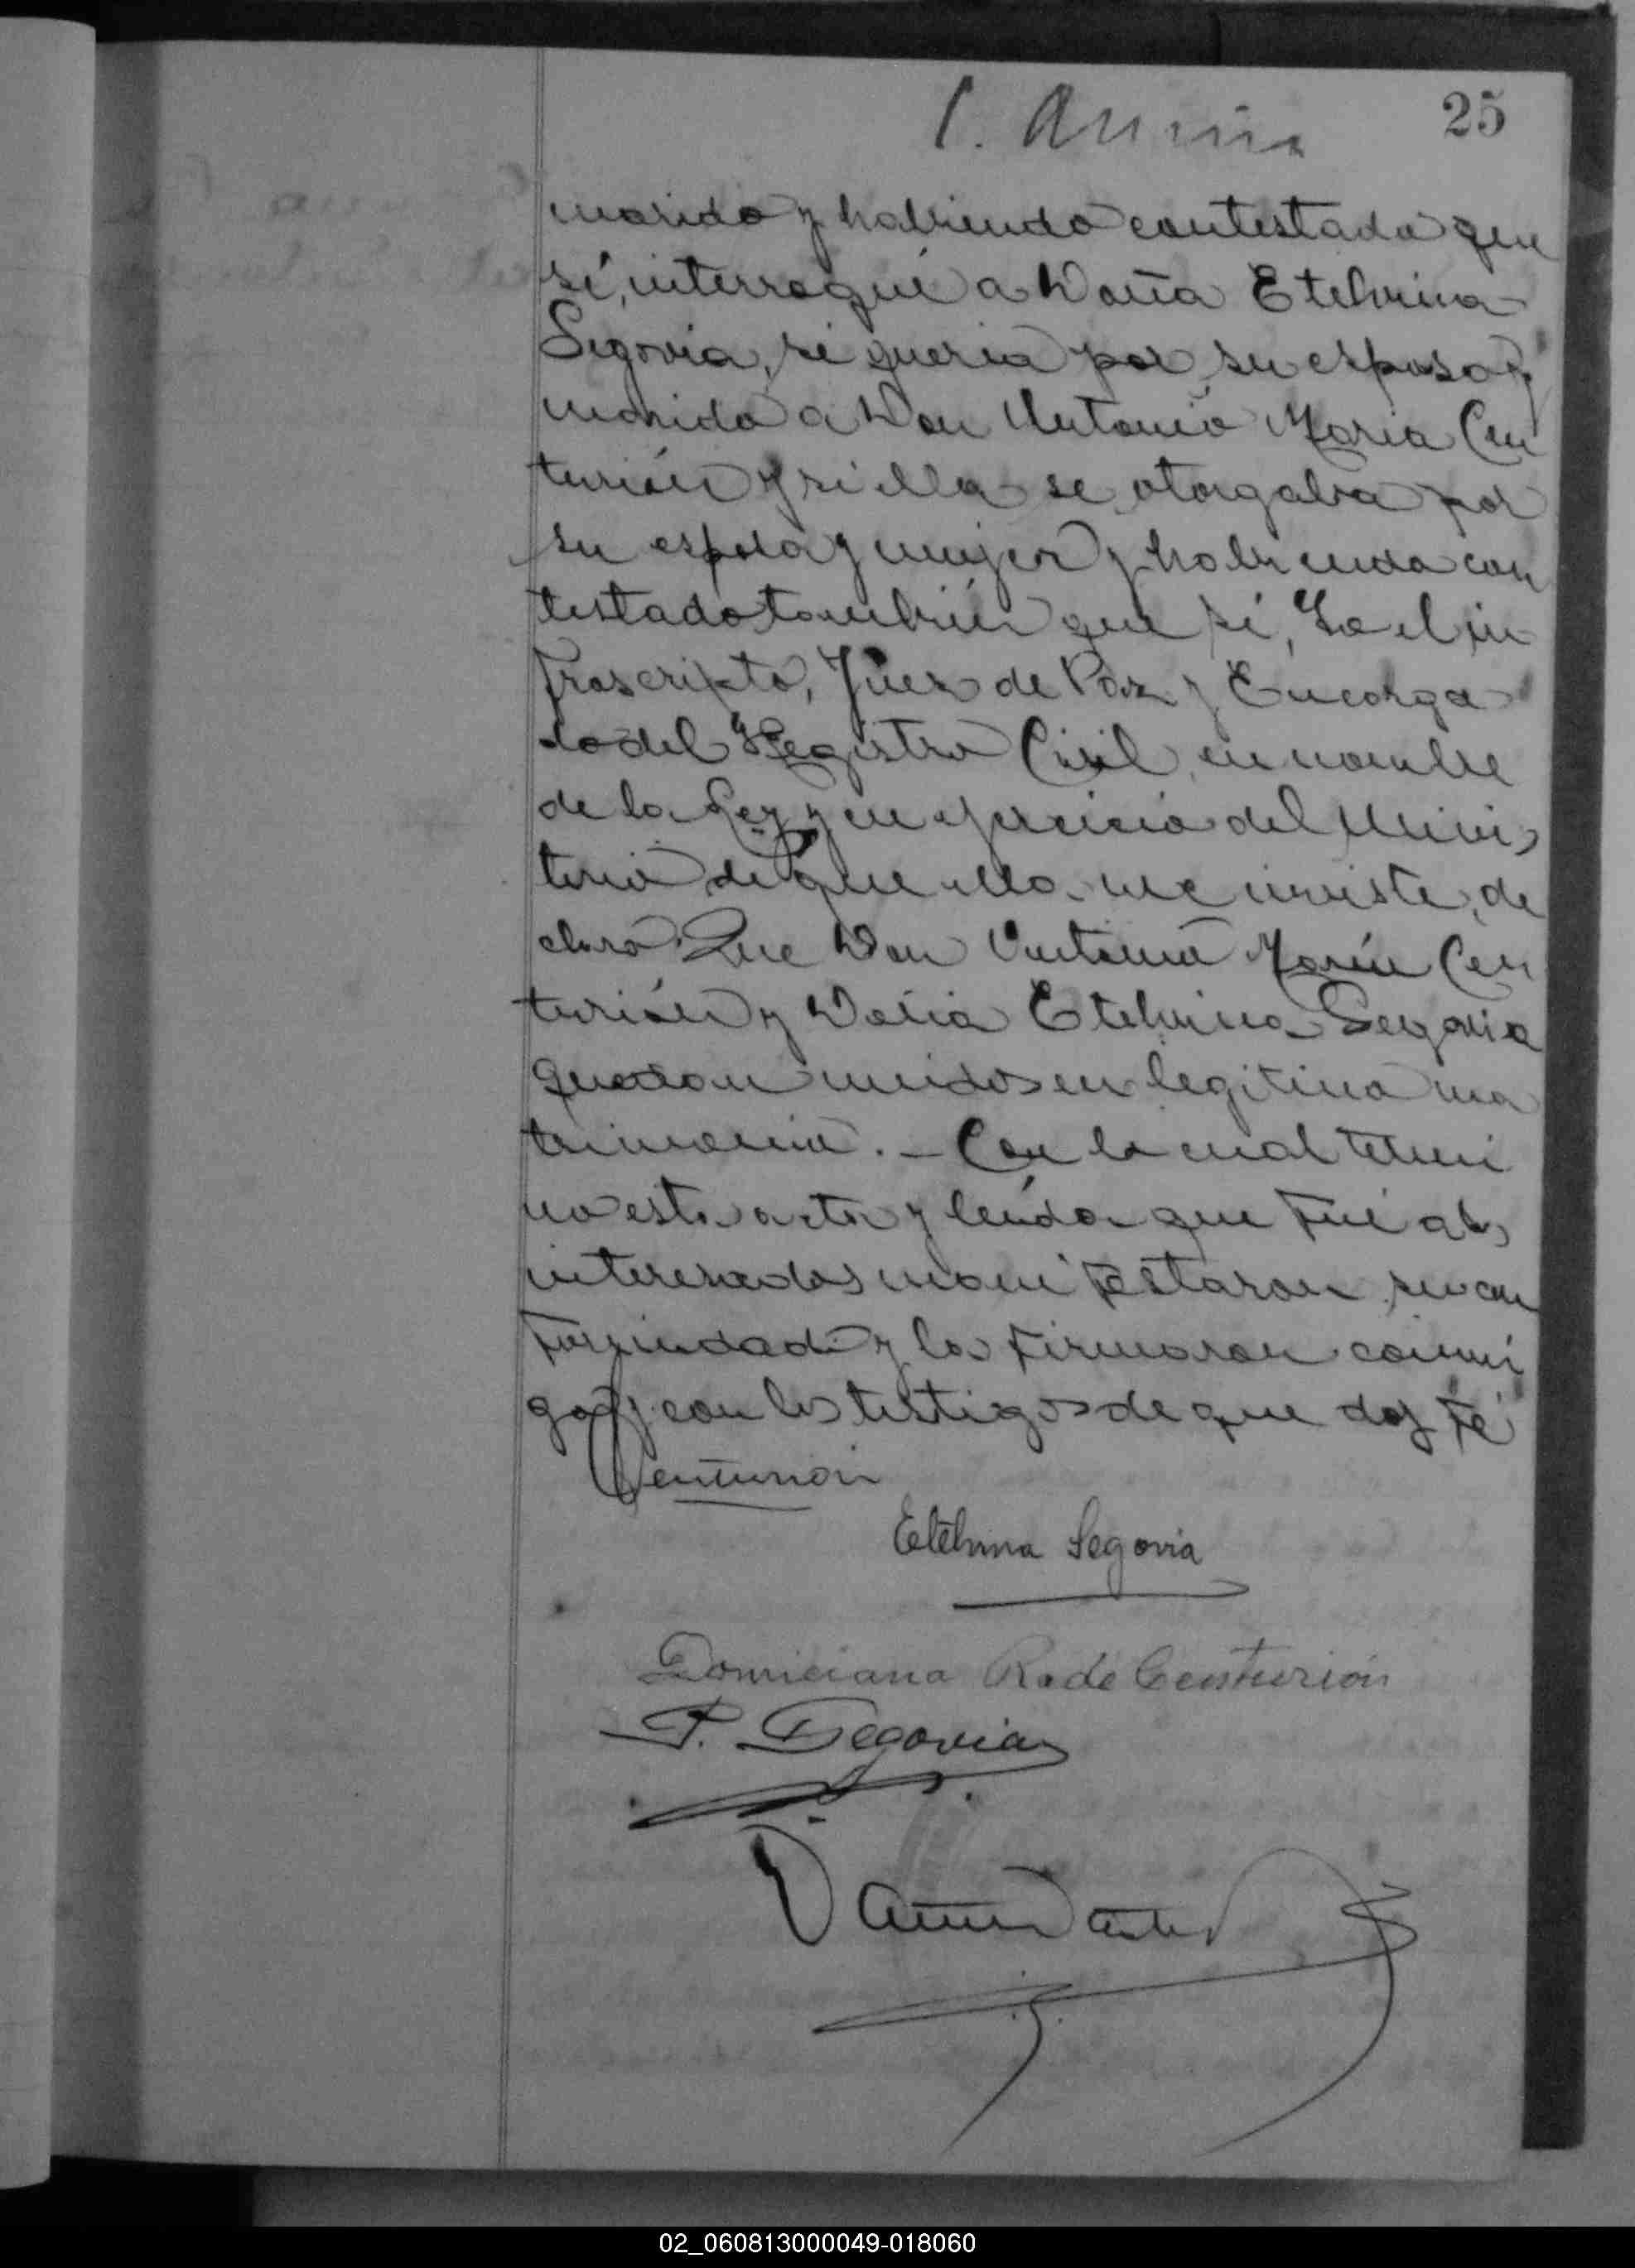 25
marido y habiendo contestado que
sí, interrogué a Doña Etelvina
Segovia, si queria por su esposo y
marido a Don Antonio Maria Cen
turión y si ella se otorgaba por
su esposa y mujer y habiendo con
testado también que sí, Yo el in
frascripto, Juez de Paz y Encarga
do del Registro Civil, en nombre
de la Ley y en ejercicio del Minis
terio de que ella me inviste, de
claro: Que Don Antonio María Cen
turión y Doña Etelvina Segovia
quedan unidos en legitimo ma
trimonio. - Con lo cual termi
no esta acta y leída que fué a los
interesados manifestaron su con
formidad y la firmaron conmi
go y con los testigos de que doy fé
Centurión
Etelvina Segovia
Domiciana R. de Centurión
P. Segovia
02_060813000049-018060